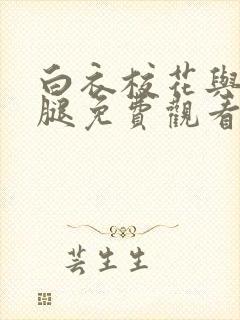 白衣校花與
腿免費觀看
芸生生